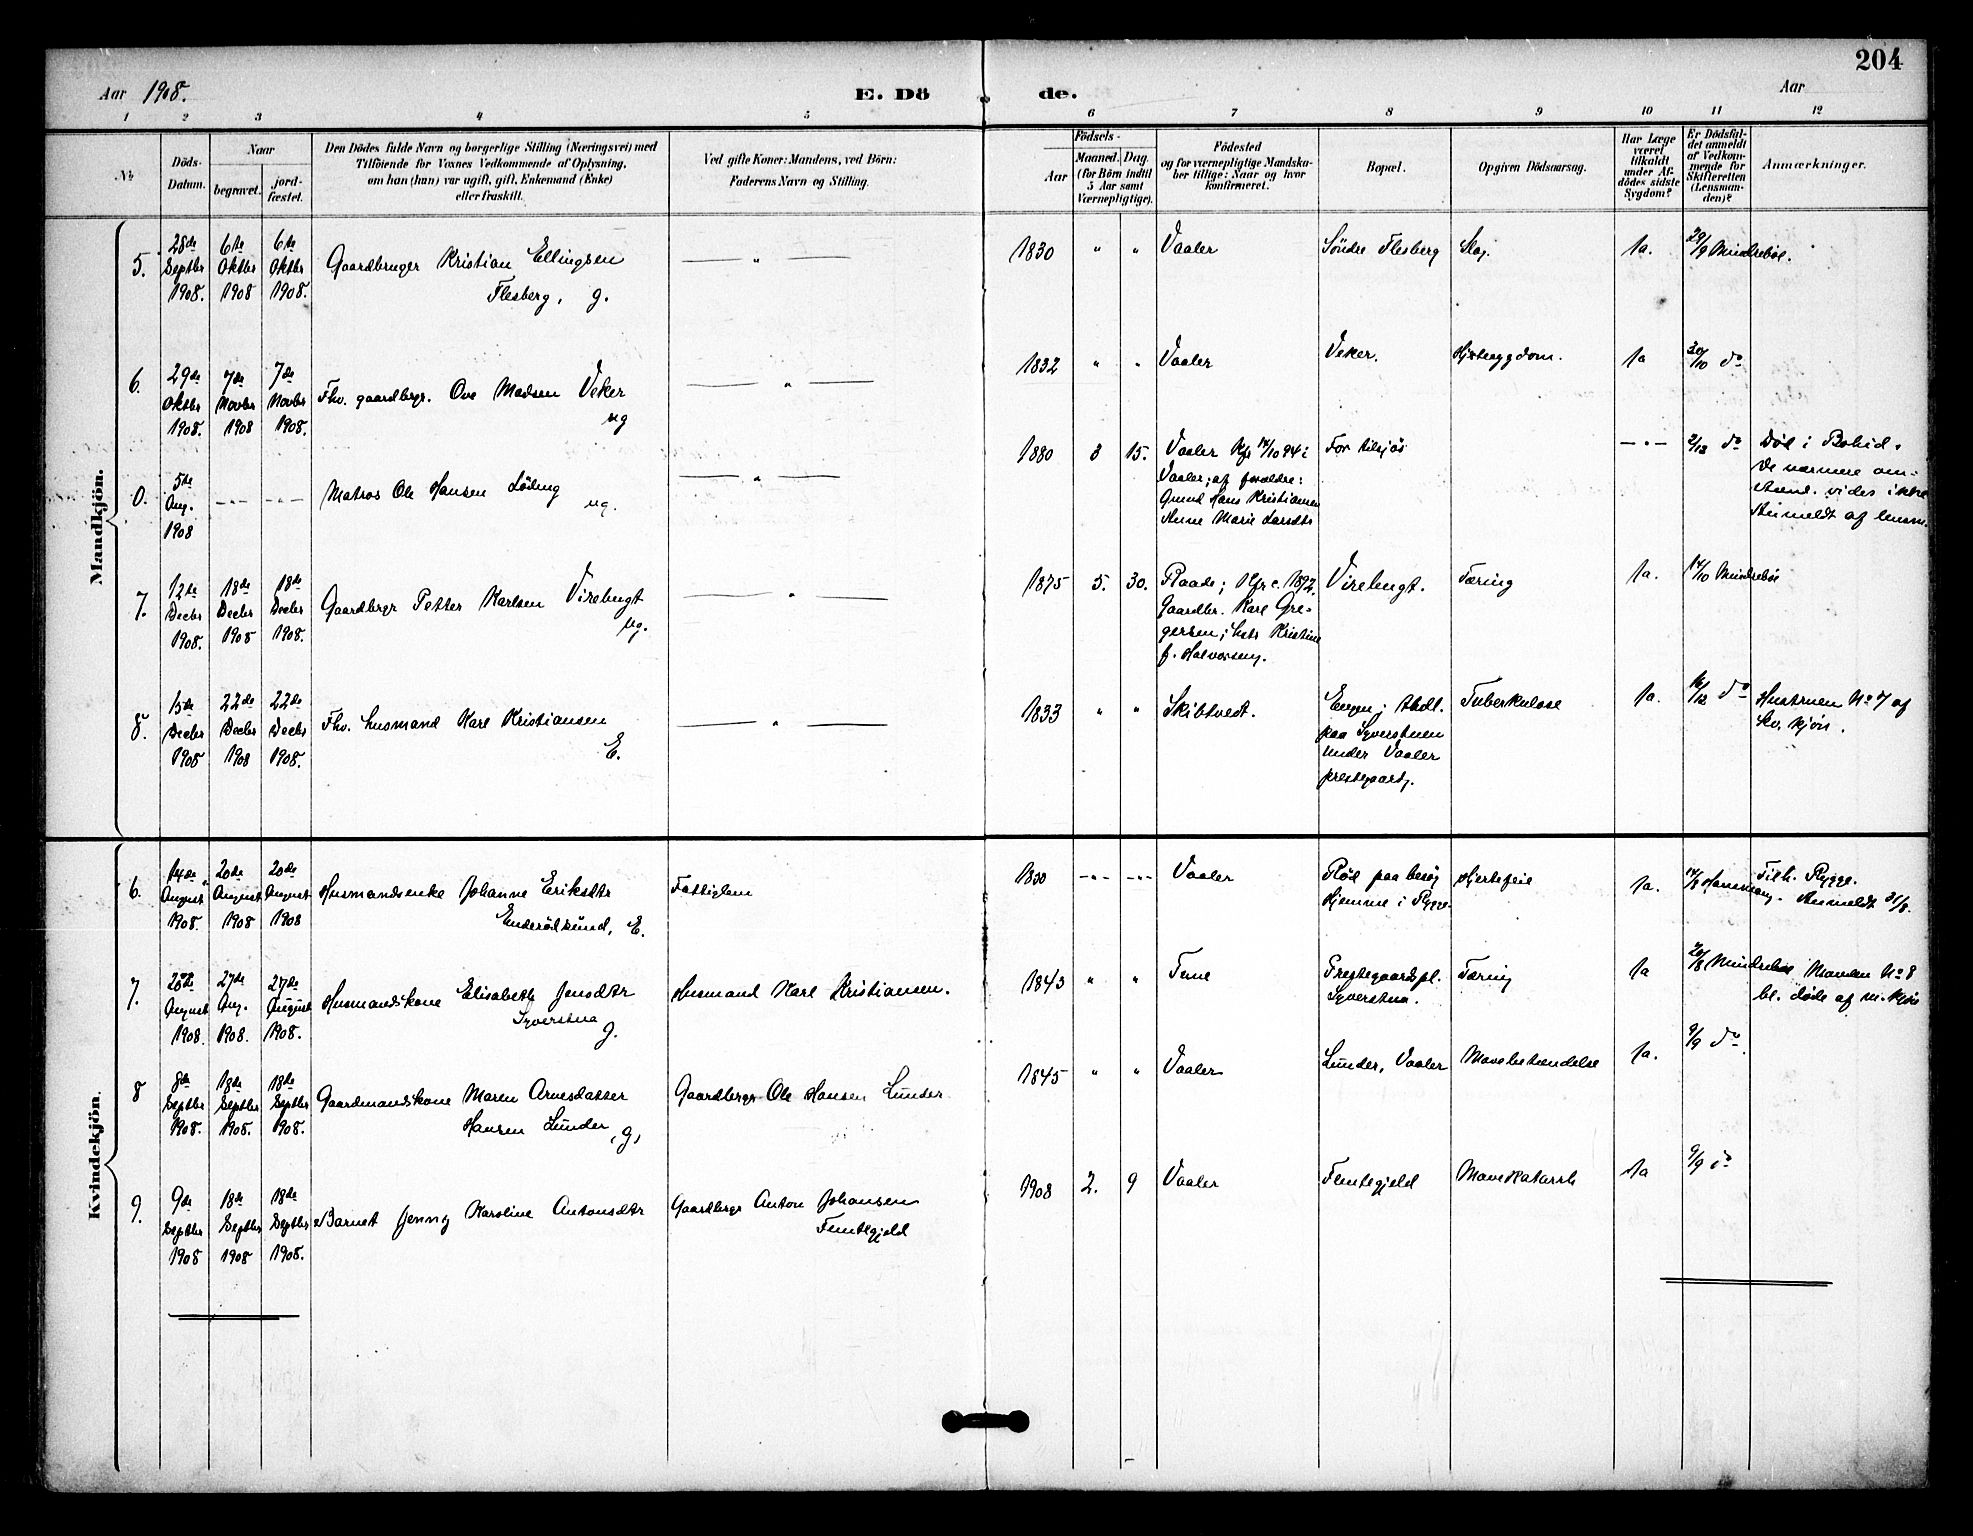 204
Aar 1908.
E. Döde.
Aar
1 2 3 4 5 6 7 8 9 10 11 12
No
Döds-Datum.
Naar
begravet.
jord-fæstet.
Den Dödes fulde Navn og borgerlige Stilling (Næringsvei) med
Tilföiende for Voxnes Vedkommende af Oplysning,
om han (hun) var ugift, gift, Enkemand (Enke)
eller fraskilt.
Ved gifte Koner: Mandens, ved Börn:
Faderens Navn og Stilling.
Födsels-
Aar
Maaned. Dag
(for Börn indtil
5 Aar samt
Værnepligtige).
Födested
og for værnepligtige Mandska-
ber tillige: Naar og hvor
konfirmeret.
Bopæl.
Opgiven Dödsaarsag.
Har Læge
været
tilkaldt
under Af-
dödes sidste
Sygdom?
Er Dödsfal-
det anmeldt
af Vedkom-
mende for
Skifteretten
(Lensman-
den)?
Anmærkninger.
Mandkjön.
5.
28de Septbr 1908.
6te Oktbr 1908
6te Oktbr 1908.
Gaardbruger Kristian Ellingsen
Flesberg, g.
— " —
1830 " "
Vaaler
Söndre Flesberg
Slag.
Ja.
29/9 Mindrebøe.
6.
29de Oktbr 1908.
7de Novbr 1908
7de Novbr 1908.
Fhv. gaardbrgr. Ove Madsen Veker
ug
— " —
1832 " "
Vaaler
Veker.
Hjertesygdom.
Ja
30/10 do
0.
5te Aug. 1908
-"-
-"-
Matros Ole Hansen Löding
ug.
— " —
1880 8 15.
Vaaler Kfr 14/10 94 i
Vaaler; af forældre:
Gmd Hans Kristiansen
Anne Marie Larsdtr
For tilsjøs
-"-
2/12 do
Död i
De nærmere om-
stænd. vides ikke
Anmeldt af lensm.
7.
12te Decbr 1908.
18de Decbr 1908
18de Decbr 1908.
Gaardbrgr Petter Karlsen Virebugt
ug.
— " —
1875 5. 30.
Raade; Kfr c. 1892.
Gaardbr. Karl Gre-
gersen; hstr Kristine
f. Halvorsen.
Virebugt.
Tæring
Ja.
14/10 Mindrebøe
8.
15de Decbr 1908
22de Decbr 1908
22de Decbr 1908.
Fhv. husmand Karl Kristiansen
E.
— " —
1833 " "
Skibtvedt.
Engen;
paa Syverstuen
under Vaaler
prestegaard.
Tuberkulose
Ja.
16/12 do
Hustruen No 7 af
kv. kjön.
Kvindekjön.
6.
14de August 1908.
20de August 1908
20de August 1908
Husmandsenke Johanne Eriksdtr
Enderödsund, E.
Fattiglem
1830 -"- -"-
Vaaler
Röd paa besög
Hjemme i Rygge.
Hjertefeil
Ja.
14/8
Tilh. Rygge.
Anmeldt 31/8.
7.
20de August 1908
27de Aug. 1908.
27de August 1908.
Husmandskone Elisabeth Jensdtr
Syverstua
g.
Husmand Karl Kristiansen.
1843 " "
Tune
Prestegaardspl.
Syverstua.
Tæring
Ja
20/8 Mindrebøe
Manden No 8
bl. døde af m.kjön
8
8de Septbr 1908.
18de Septbr 1908.
18de Septbr 1908.
Gaardmandskone Maren Arnesdatter
Hansen Lunder, g,
Gaardbrgr Ole Hansen Lunder
1845 " "
Vaaler
Lunder, Vaaler
Mavebetændelse
Ja.
9/9 do
9.
9de Septbr 1908
18de Septbr 1908
18de Septbr 1908.
Barnet Jenny Karoline Antonsdtr
Gaardbrgr Anton Johansen
Femtegjeld
1908 2. 9
Vaaler
Femtegjeld
Mavekatarrh
Ja
9/9 do